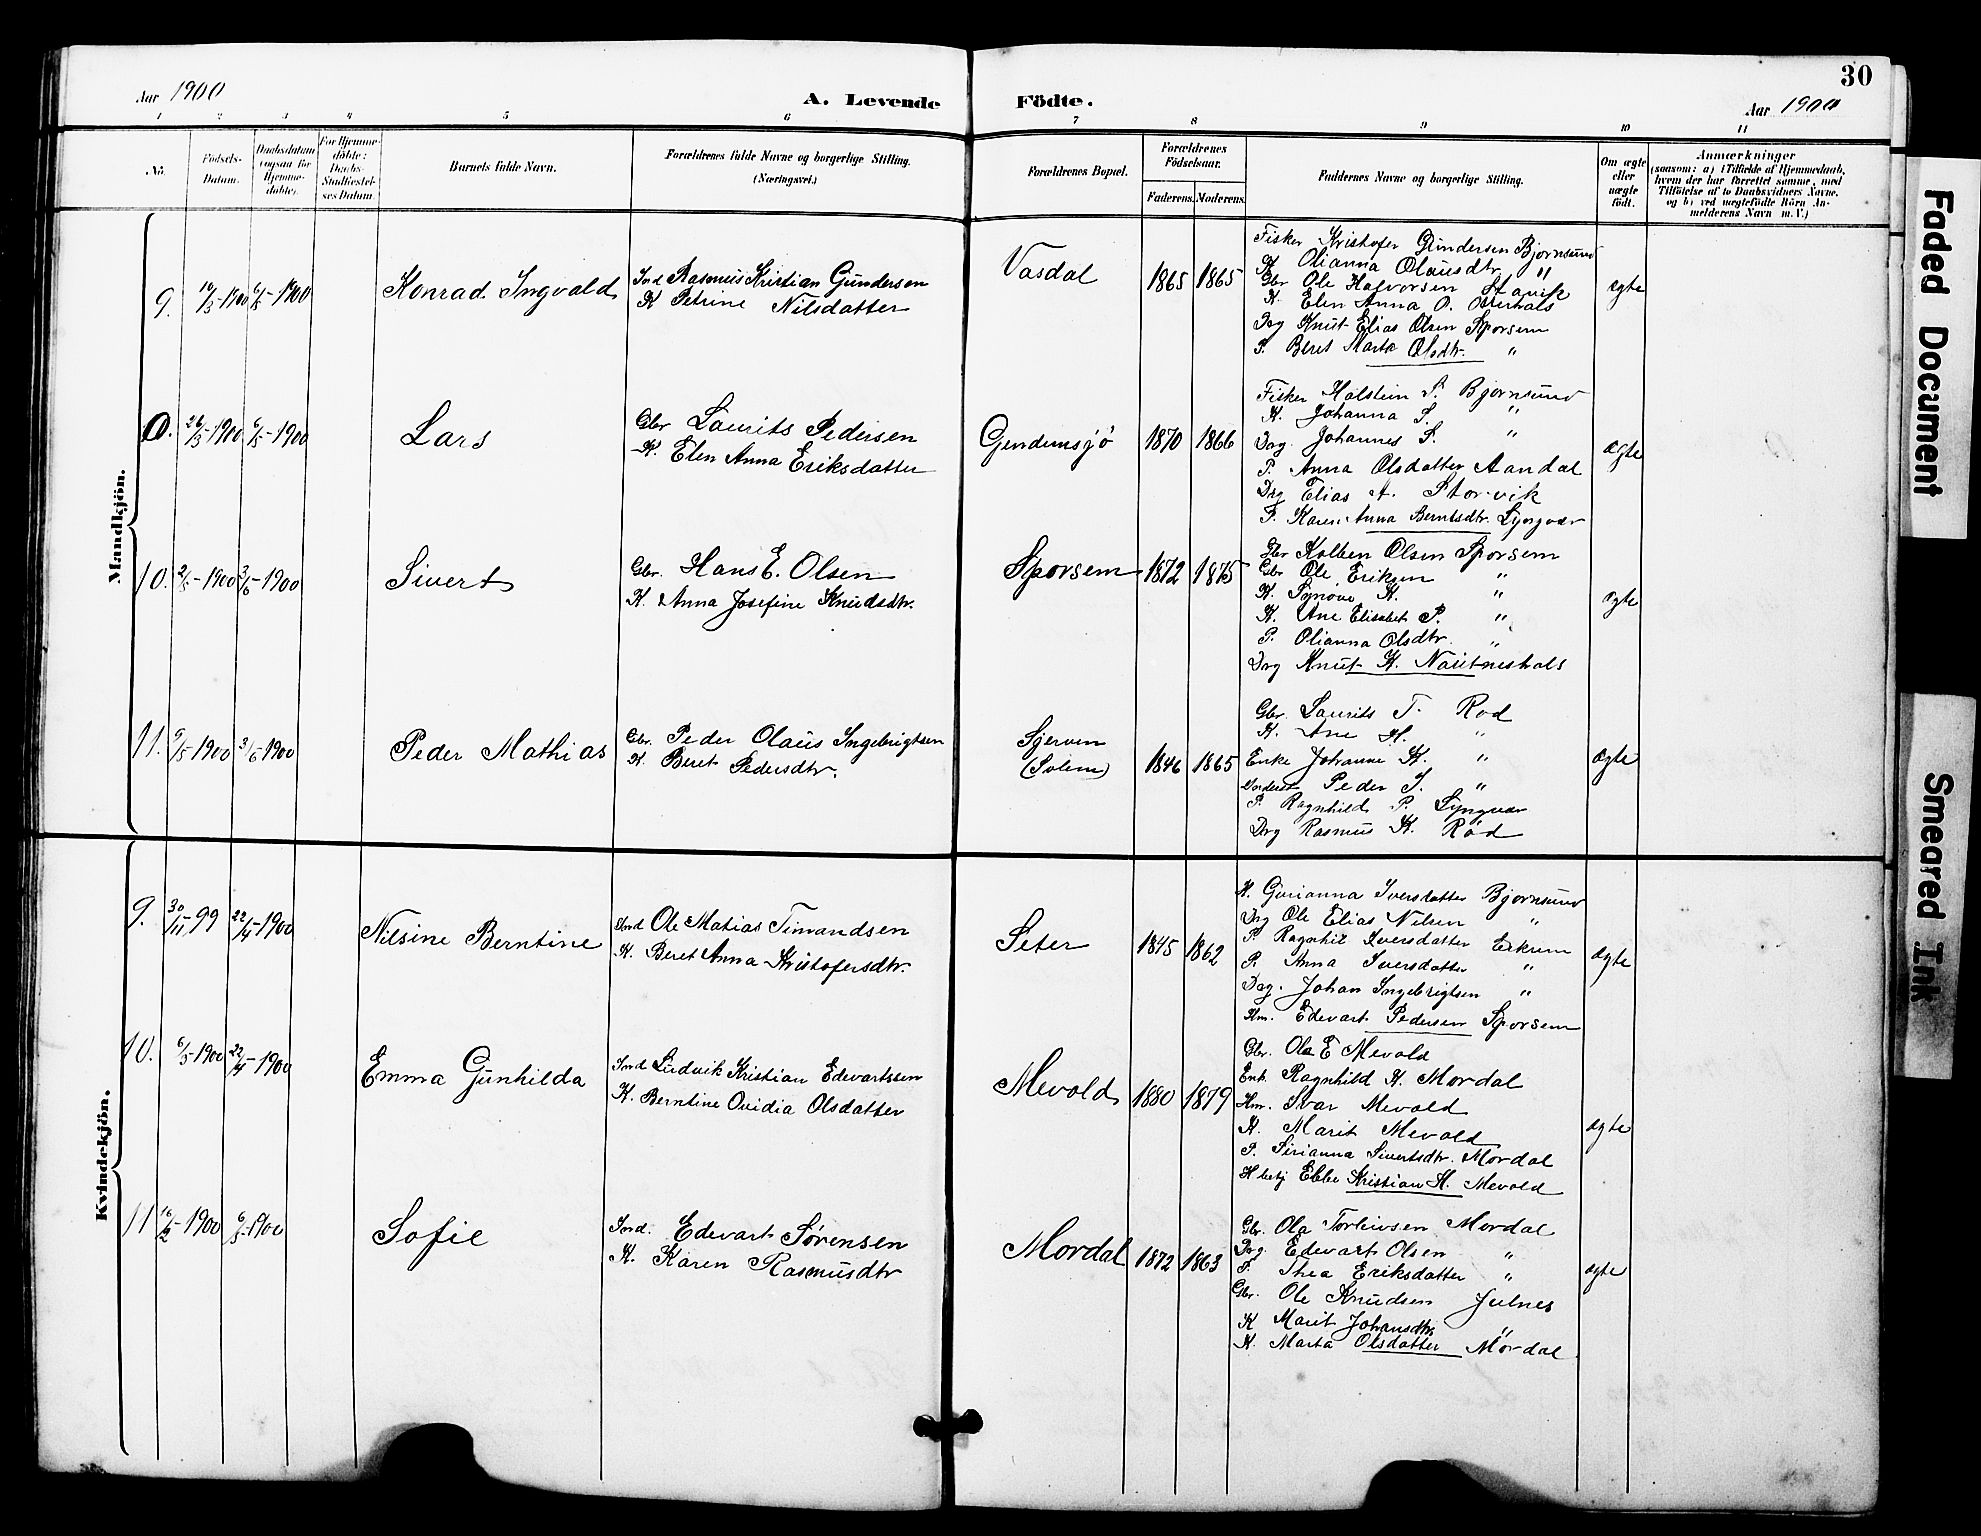 30
Aar 1900
A. Levende
Födte.
Aar 1900
1 2 3 4 5 6 7 8 9 10 11
No.
Födsels-
Datum.
Daabsdatum
(ogsaa for
Hjemme-
døbte).
For Hjemme-
døbte:
Daabs-
Stadfæstel-
ses Datum.
Barnets fulde Navn.
Forældrenes fulde Navne og borgerlige Stilling.
(Næringsvei.)
Forældrenes Bopæl.
Forældrenes
Födselsaar.
Faderens. Moderens.
Faddernes Navne og borgerlige Stilling.
Om ægte
eller
uægte
født.
Anmærkninger
(saasom: a) i Tilfælde af Hjemmedaab,
hvem der har forrettet samme, med
Tilföielse af to Daabsvidners Navne,
og b) ved uægtefödte Börn An-
melderens Navn m. V.)
Mandkjön.
9. 6/5-1900
Konrad Ingvald
Ind Rasmus Kristian Gundersen
K Petrine Nilsdatter
Vasdal
1865 1865
Fisker Kristofer Gundersen Bjornsund
K Olianna Olausdtr "
Gbr Ole Halvorsen Stavik
K. Elen Anna O.
Drg Knut Elias Olsen Sporsem
P. Berit Marta Olsdtr. "
ægte
0. 26/3-1900 6/5-1900
Lars
Gbr Laurits Pedersen
K. Elen Anna Eriksdatter
Gendemsjö
1870 1866
Fisker Holstein S. Bjornsund
K. Johanna S. "
Drg. Johannes S. "
P. Anna Olsdatter Aandal
Drg Elias A. Storvik
P. Karen Anna Berntsdtr. Lyngvær
ægte
10. 2/5-1900 3/6-1900
Sivert
Gbr. Hans E. Olsen
K. Anna Josefine Knudsdtr.
Sporsem
1872 1875
Gbr Kolben Olsen Sporsem
Gbr Ole Eriksen "
K. Synove K. "
K. Ane Elisabet P. "
P. Olianna Olsdtr. "
Drg Knut K. Nautneshals
ægte
11. 9/5 1900 3/6-1900
Peder Mathias
Gbr. Peder Olaus Ingebrigtsen
K. Beret Pedersdtr.
Sjerven
(Solem)
1846 1865
Gbr. Laurits T. Rod
K. Ane H. "
Enke Johanne K. "
Peder J. "
P. Ragnhild P. Lyngvær
Drg Rasmus K. Röd
ægte
Kvindekjön.
9. 30/11 99 22/4-1900
Nilsine Berntine
Ind Ole Matias Timandsen
K. Beret Anna Kristofersdtr.
Seter
1845 1862
K. Gurianna Iversdatter Bjornsund
Drg Ole Elias Nilsen "
P. Ragnhil Iversdatter Eikrem
P. Anna Iversdatter "
Drg. Johan Ingebrigtsen "
Km. Edevart Pedersen Sporsem
ægte
10. 6/3-1900 22/4-1900
Emma Gunhilda
Ind Ludvik Kristian Edevartssen
K. Berntine Ovidia Olsdatter
Mevold
1880 1879
Gbr. Ola E Mevold
Enk. Ragnhild K. Mordal
Km. Ivar Mevold
K. Marit Mevold
P. Sirianna Sivertsdtr. Mordal
Ebbe Kristian H. Mevold
ægte
11 10/2-1900 6/5-1900
Sofie
Ind. Edevart Sørensen
K. Karen Rasmusdtr
Mordal
1872 1863
Gbr. Ola Torleivsen Mordal
Drg Edevart Olsen "
P. Thea Eriksdatter "
Gbr. Ole Knudsen Julnes
K Marit Johansdtr "
K. Marta Olsdatter Mordal
ægte
Faded Document
Smeared Ink